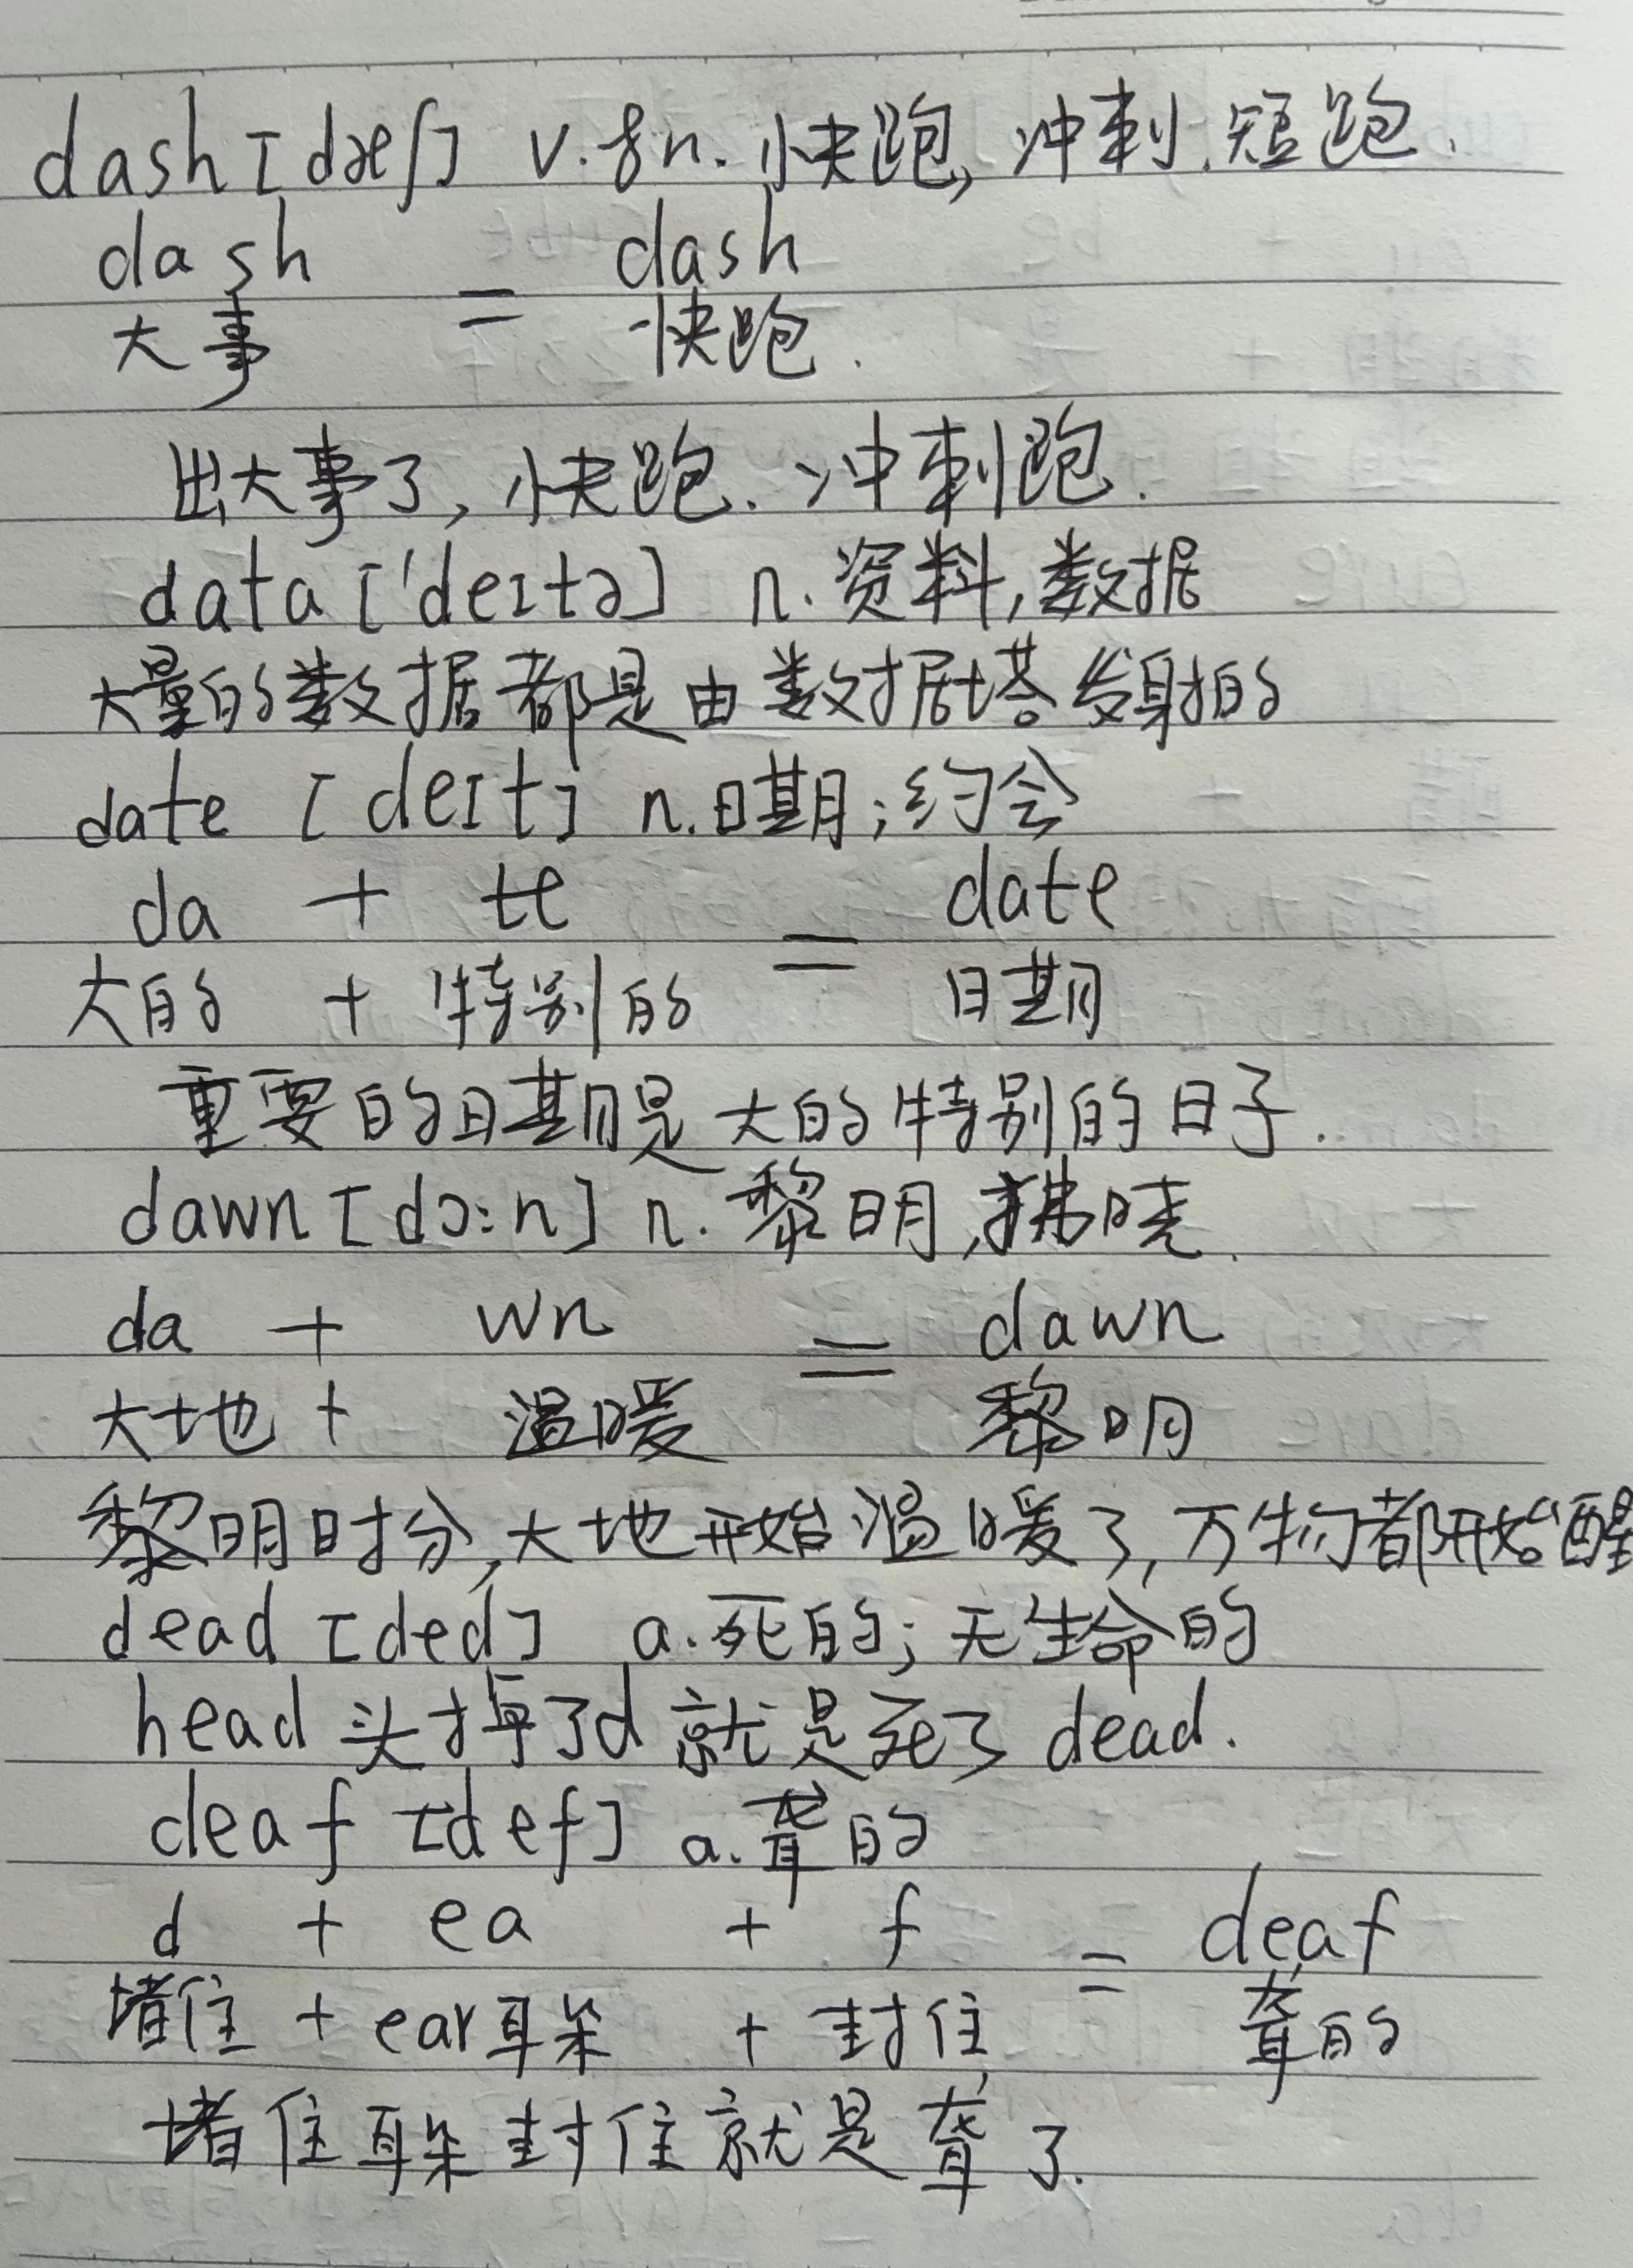 dash [dæʃ] v.&n. 快跑, 冲刺.短跑.
da sh = dash
大 事 快跑.
出大事了, 快跑. 冲刺跑.
data ['deɪtə] n. 资料, 数据
大量的数据都是由数据塔发射的
date [deɪt] n. 日期; 约会
da + te = date
大的 + 特别的 日期
重要的日期是大的特别的日子.
dawn [dɔ:n] n. 黎明, 拂晓.
da + wn = dawn
大地 + 温暖 黎明
黎明时分, 大地开始温暖了, 万物都开始醒
dead [ded] a. 死的; 无生命的
head 头掉了d 就是死了 dead.
deaf [def] a. 聋的
d + ea + f = deaf
堵住 + ear耳朵 + 封住 聋的
堵住耳朵封住就是聋了.